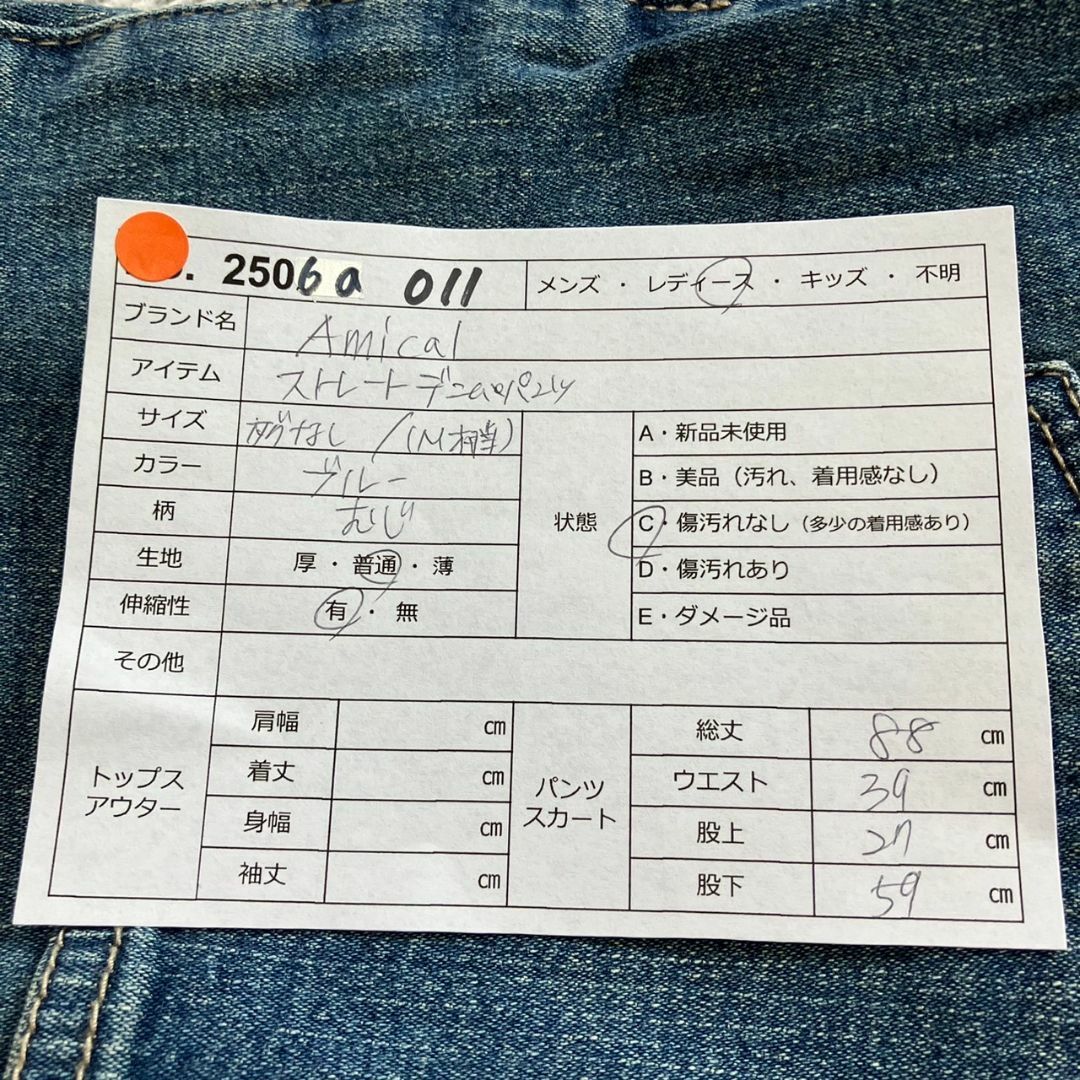 . 2506a 011
メンズ ・ レディース ・ キッズ ・ 不明
ブランド名 Amical
アイテム ストレートデニムパンツ
サイズ タグなし /(M相当)
カラー ブルー
柄 むじ
生地 厚 ・ 普通 ・ 薄
伸縮性 有 ・ 無
状態
A・新品未使用
B・美品（汚れ、着用感なし）
C・傷汚れなし（多少の着用感あり）
D・傷汚れあり
E・ダメージ品
その他
トップス
アウター
肩幅 ㎝
着丈 ㎝
身幅 ㎝
袖丈 ㎝
パンツ
スカート
総丈 88 ㎝
ウエスト 39 ㎝
股上 27 ㎝
股下 59 ㎝